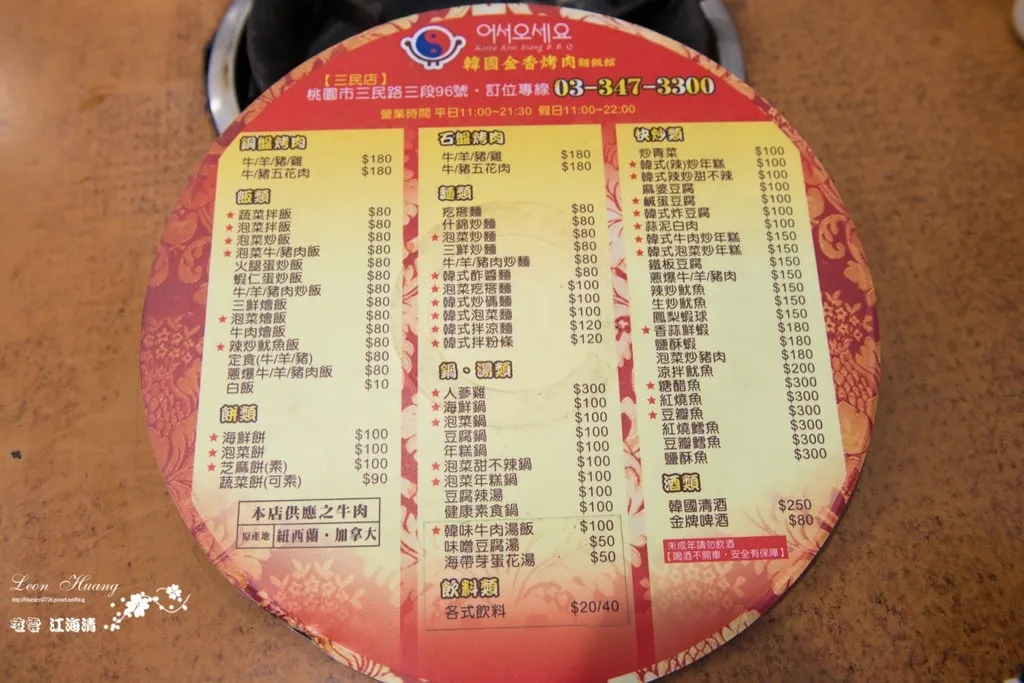 어서오세요
Korea Kin Siang B.B.Q
韓國金香烤肉 麵飯館
【三民店】
桃園市三民路三段96號・訂位專線 03-347-3300
營業時間 平日11:00~21:30 假日11:00~22:00
銅盤烤肉
牛/羊/豬/雞 $180
牛/豬五花肉 $180
飯類
★蔬菜拌飯 $80
★泡菜拌飯 $80
★泡菜炒飯 $80
★泡菜牛/豬肉飯 $80
火腿蛋炒飯 $80
蝦仁蛋炒飯 $80
牛/羊/豬肉炒飯 $80
三鮮燴飯 $80
★泡菜燴飯 $80
牛肉燴飯 $80
★辣炒魷魚飯 $80
定食(牛/羊/豬) $80
蔥爆牛/羊/豬肉飯 $80
白飯 $10
餅類
★海鮮餅 $100
★泡菜餅 $100
★芝麻餅(素) $100
蔬菜餅(可素) $90
本店供應之牛肉
原產地 紐西蘭・加拿大
石盤烤肉
牛/羊/豬/雞 $180
牛/豬五花肉 $180
麵類
疙瘩麵 $80
什錦炒麵 $80
★泡菜炒麵 $80
三鮮炒麵 $80
牛/羊/豬肉炒麵 $80
★韓式酢醬麵 $80
★泡菜疙瘩麵 $100
★韓式炒碼麵 $100
★韓式泡菜麵 $100
★韓式拌涼麵 $120
★韓式拌粉條 $120
鍋、湯類
★人蔘雞 $300
★海鮮鍋 $100
★泡菜鍋 $100
豆腐鍋 $100
年糕鍋 $100
★泡菜甜不辣鍋 $100
★泡菜年糕鍋 $100
豆腐辣湯 $100
健康素食鍋 $100
★韓味牛肉湯飯 $100
味噌豆腐湯 $50
海帶芽蛋花湯 $50
飲料類
各式飲料 $20/40
快炒類
炒青菜 $100
★韓式(辣)炒年糕 $100
★韓式辣炒甜不辣 $100
麻婆豆腐 $100
★鹹蛋豆腐 $100
★韓式炸豆腐 $100
★蒜泥白肉 $100
★韓式牛肉炒年糕 $150
★韓式泡菜炒年糕 $150
鐵板豆腐 $150
蔥爆牛/羊/豬肉 $150
辣炒魷魚 $150
生炒魷魚 $150
鳳梨蝦球 $150
★香蒜鮮蝦 $180
鹽酥蝦 $180
泡菜炒豬肉 $180
涼拌魷魚 $200
★糖醋魚 $300
★紅燒魚 $300
★豆瓣魚 $300
紅燒鱈魚 $300
豆瓣鱈魚 $300
鹽酥魚 $300
酒類
韓國清酒 $250
金牌啤酒 $80
未成年請勿飲酒
【喝酒不開車・安全有保障】
Leon Huang
江海清